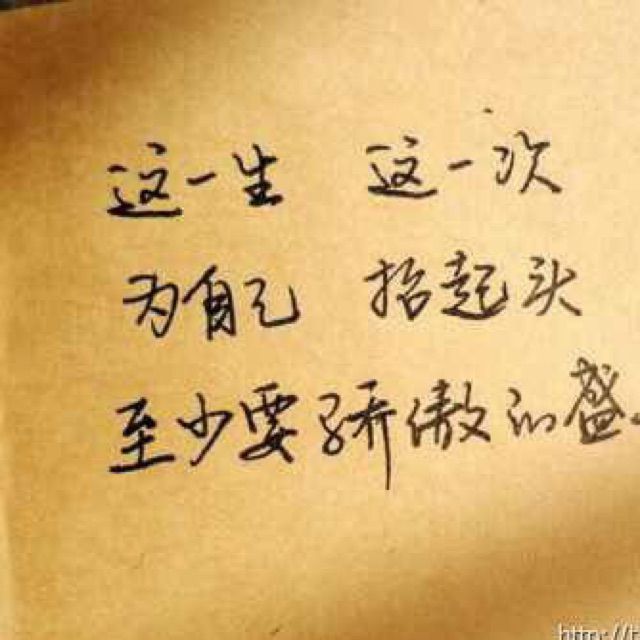 这一生 这一次
为自己 抬起头
至少要骄傲的盛
http://t